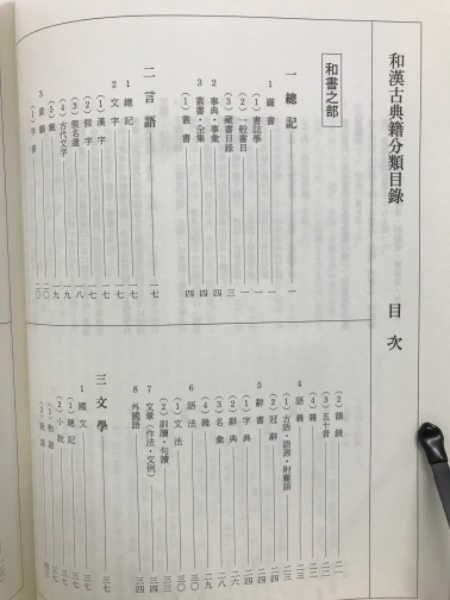 和漢古典籍分類目錄
目次
和書之部
一 總記 一
1 圖書 一
(1) 書誌學 一
(2) 一般書目 一
(3) 藏書目錄 三
2 事典・事彙 四
3 叢書・全集 四
(1) 叢書 四
二 言語 一七
1 總記 一七
2 文字 一七
(1) 漢字 一七
(2) 假字 一七
(3) 假名遣 一八
(4) 古代文字 一九
(5) 一九
3 音韻 二〇
(1) 二〇
(2) 韻鏡 二一
(3) 五十音 二二
(4) 雜 二二
4 語義 二三
(1) 古語・語源・附屬語 二三
(2) 冠辭 二四
5 辭書 二四
(1) 字典 二四
(2) 辭典 二六
(3) 名彙 二八
(4) 雜 二九
6 語法 三〇
(1) 文法 三〇
(2) 訓讀・句讀 三三
7 文章(作法・文例) 三四
8 外國語 三四
三 文學 三七
1 國文 三七
(1) 總記 三七
(2) 小說 三七
(1) 物語 三七
(2) 說話